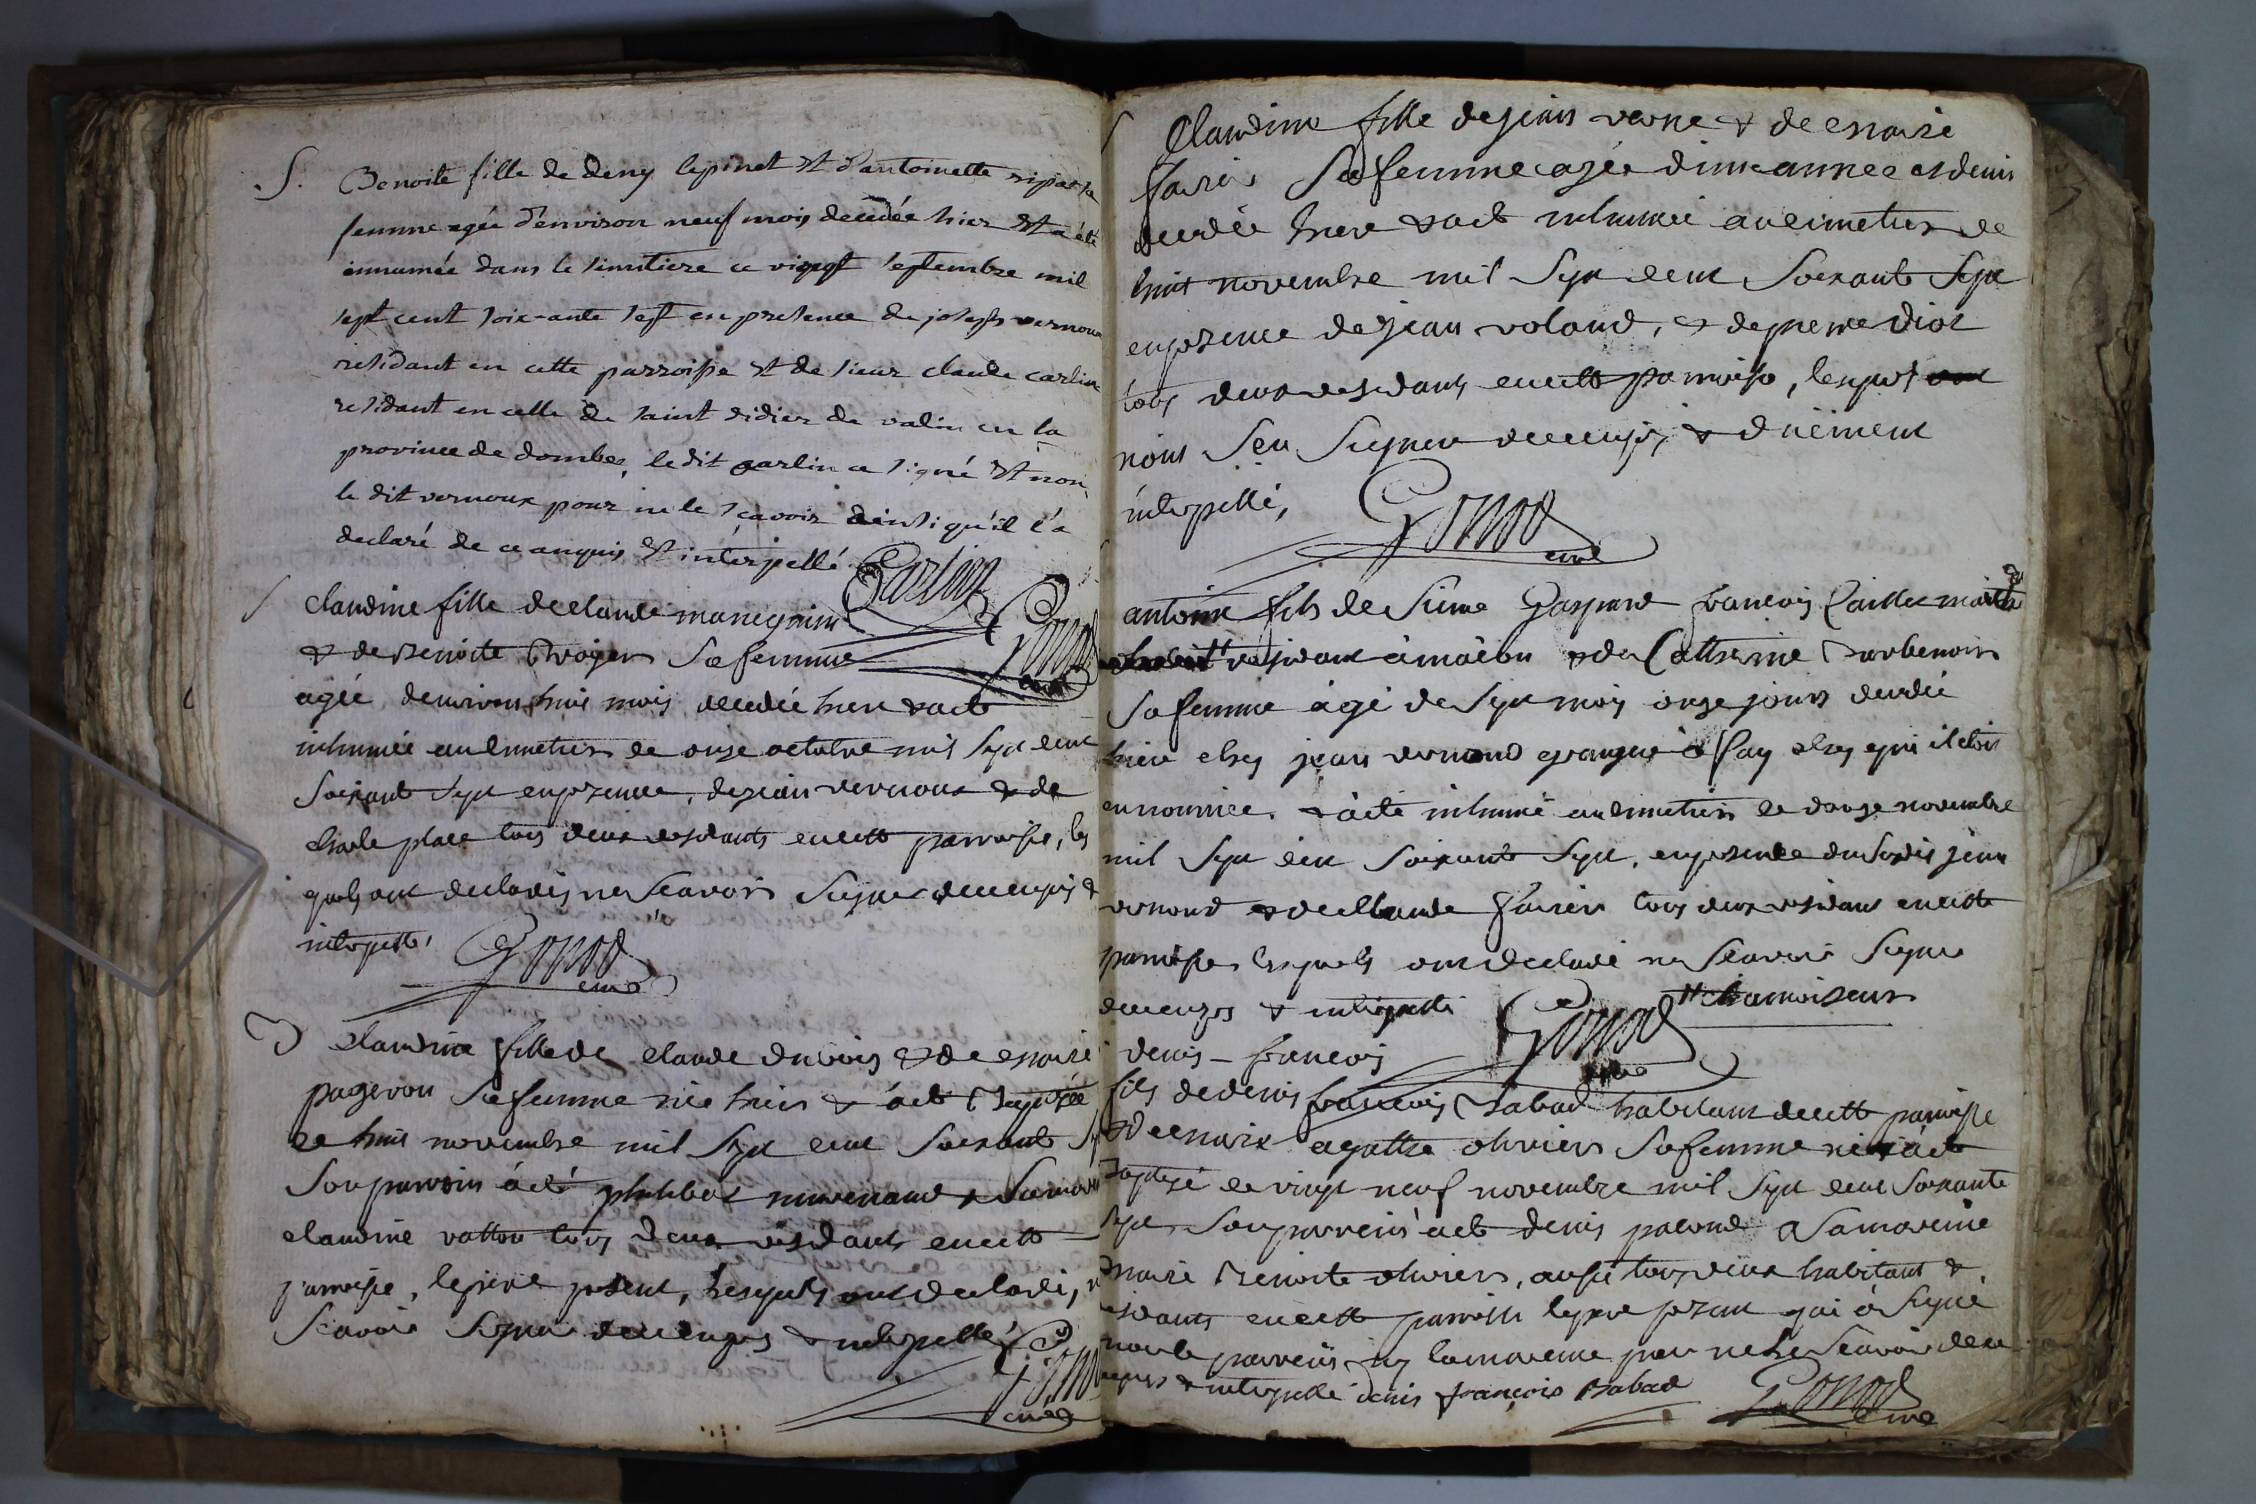 S. Benoite fille de deny lepinet et d'antoinette ripar sa
femme agée d'environ neuf mois decedée hier et a été
innumée dans le simitiere ce vingt septembre mil
sept cent soix-ante sept en presence de joseph vernoux
residant en cette parroisse et de sieur claude carlin
residant en celle de saint didier de valin en la
province de dombes, ledit carlin a signé et non
le dit vernoux pour ne le sçavoir ainsi qu'il l'a
declaré de ce anquis et interpellé Carlin
S claudine fille de claude manegrin Gonod
& de Benoite Broyer sa femme curé
agée denviron huit mois decedée hier & a ete
inhumée au cimetiere ce onze octobre mil sept cent
soixante sept en presence, de jean vernoux & de
charle place tous deux residants en cette parroisse, les
quels ont declarés ne scavoir signer de ce enquis &
interpellé, Gonod
curé
claudine fille de claude dubois & de marie
pageron sa femme née hier & a été Baptisée
ce huit novembre mil sept cent soixante sept
son parrain a été philibert & sa marraine
claudine vatton tous deux residants en cette
parroisse, le pere present, lesquels ont declaré, ne
scavoir signer de ce enquis & interpellé, Gonod
curé
S Claudine fille de jean verne & de marie
favier sa femme agée d'une année et demis
decedée hier & a ete inhumée au cimetiere ce
huit novembre mil sept cent soixante sept
en presence de jean voland, & de pierre
tous deux residants en cette parroisse, lesquels
n'ont seu signer de ce enquis & duement
interpellé, Gonod
curé
antoine fils de sieur Gaspard françois Caillet maitre
" residant à mâcon & de Catherine Barbenoir
sa femme agé de sept mois onze jours decedé
hier chez jean vernoud granger à fay chez qui il etoit
en nourrice & a été inhumé au cimetiere ce douze novembre
mil sept cent soixante sept, en presence du susdit jean
vernoud & de Claude favier tous deux residans en cette
parroisse lesquels ont declaré ne scavoir signer
de ce enquis & interpellé Gonod " chamoiseur
curé
denis - françois
fils de denis françois Babad habitant de cette parroisse
& de marie agathe olivier sa femme né & a été
Baptisé ce vingt neuf novembre mil sept cent soixante
sept son parrein a été denis & sa mareine
marie Benoite olivier, aussi tous deux habitant &
residants en cette parroisse le pere present qui a signé
non le parrein ny la mareine pour ne le scavoir de ce
enquis & interpellé denis françois Babad Gonod
curé